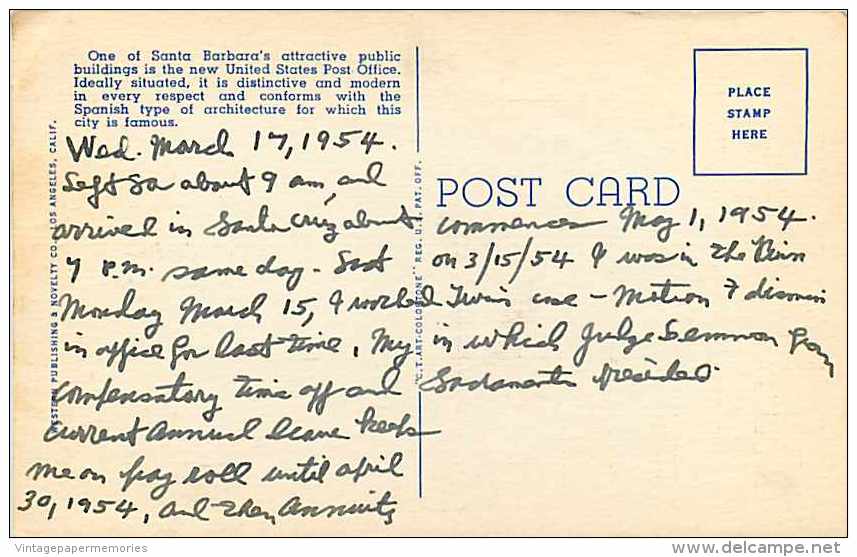 One of Santa Barbara's attractive public
buildings is the new United States Post Office.
Ideally situated, it is distinctive and modern
in every respect and conforms with the
Spanish type of architecture for which this
city is famous.
Wed. March 17, 1954.
Left SB about 9 am, and
arrived in Santa Cruz about
7 P.M. same day - Last
Monday March 15, I worked
in office for last time. My
compensatory time off and
current annual leave keeps
me on pay roll until april
30, 1954, and then Annuity
commences May 1, 1954.
on 3/15/54 I was in the
Twins case - Motion to dismiss
in which Judge from
Sacramento presided.
POST CARD
PLACE
STAMP
HERE
WESTERN PUBLISHING & NOVELTY CO., LOS ANGELES, CALIF.
"C.T. ART-COLORTONE" REG. U.S. PAT. OFF.
Vintagepapermemories
delcampe.net